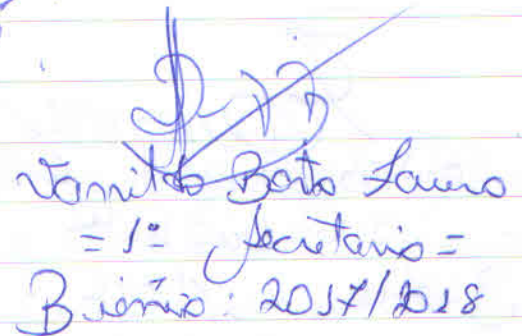 Vanildo Borto Lauro
= 1º Secretario =
Biênio: 2017/2018